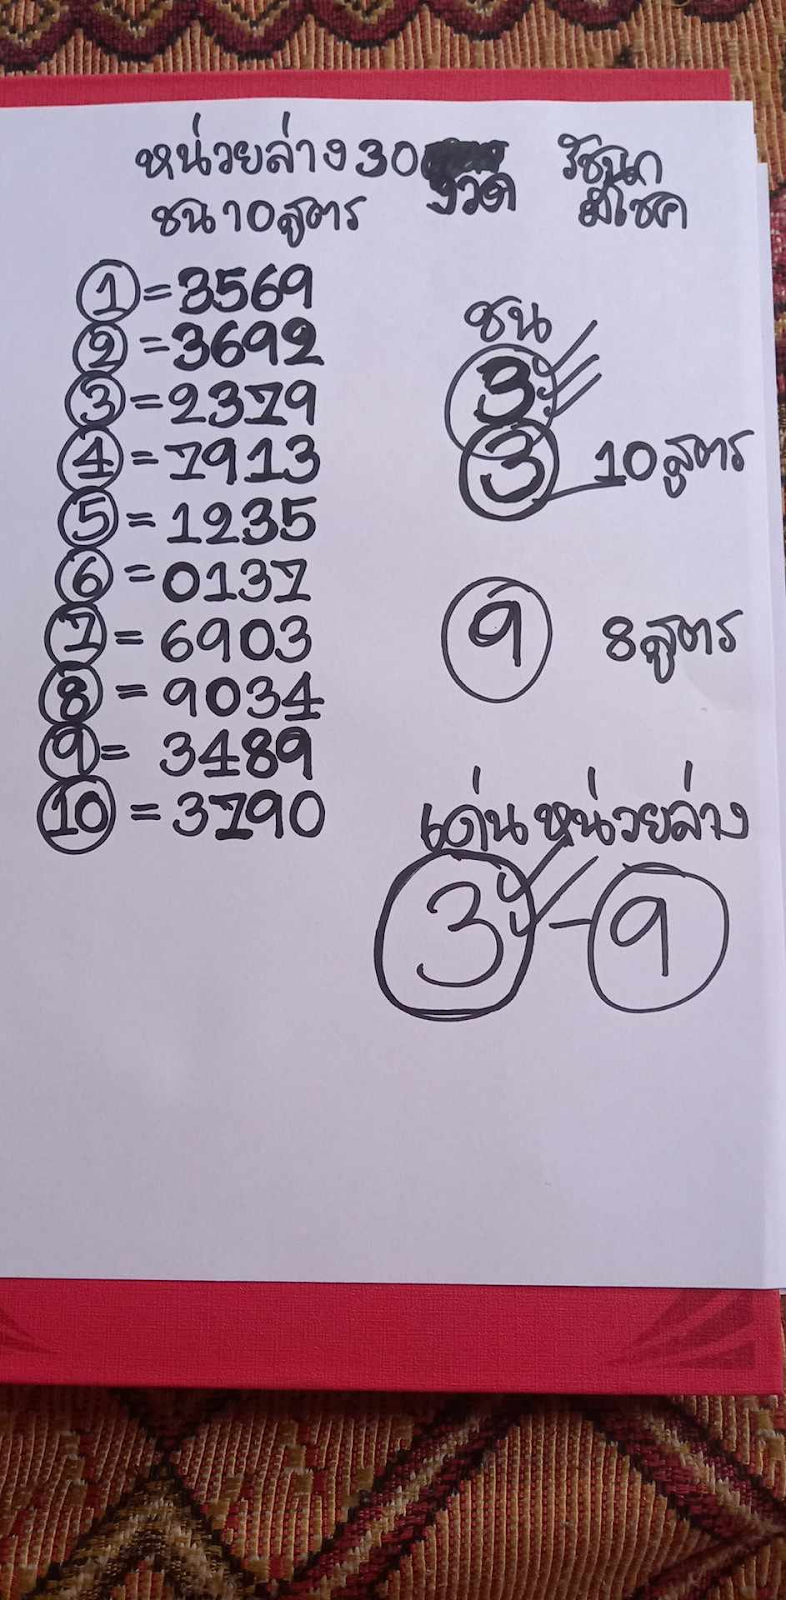 หน่วยล่าง 30 งวด
ชน 10 สูตร
รัชนก
มีโชค
1 = 3569
2 = 3692
3 = 2379
4 = 7913
5 = 1235
6 = 0137
7 = 6903
8 = 9034
9 = 3489
10 = 3790
ชน
3
3 10 สูตร
9 8 สูตร
เด่น หน่วยล่าง
3 - 9